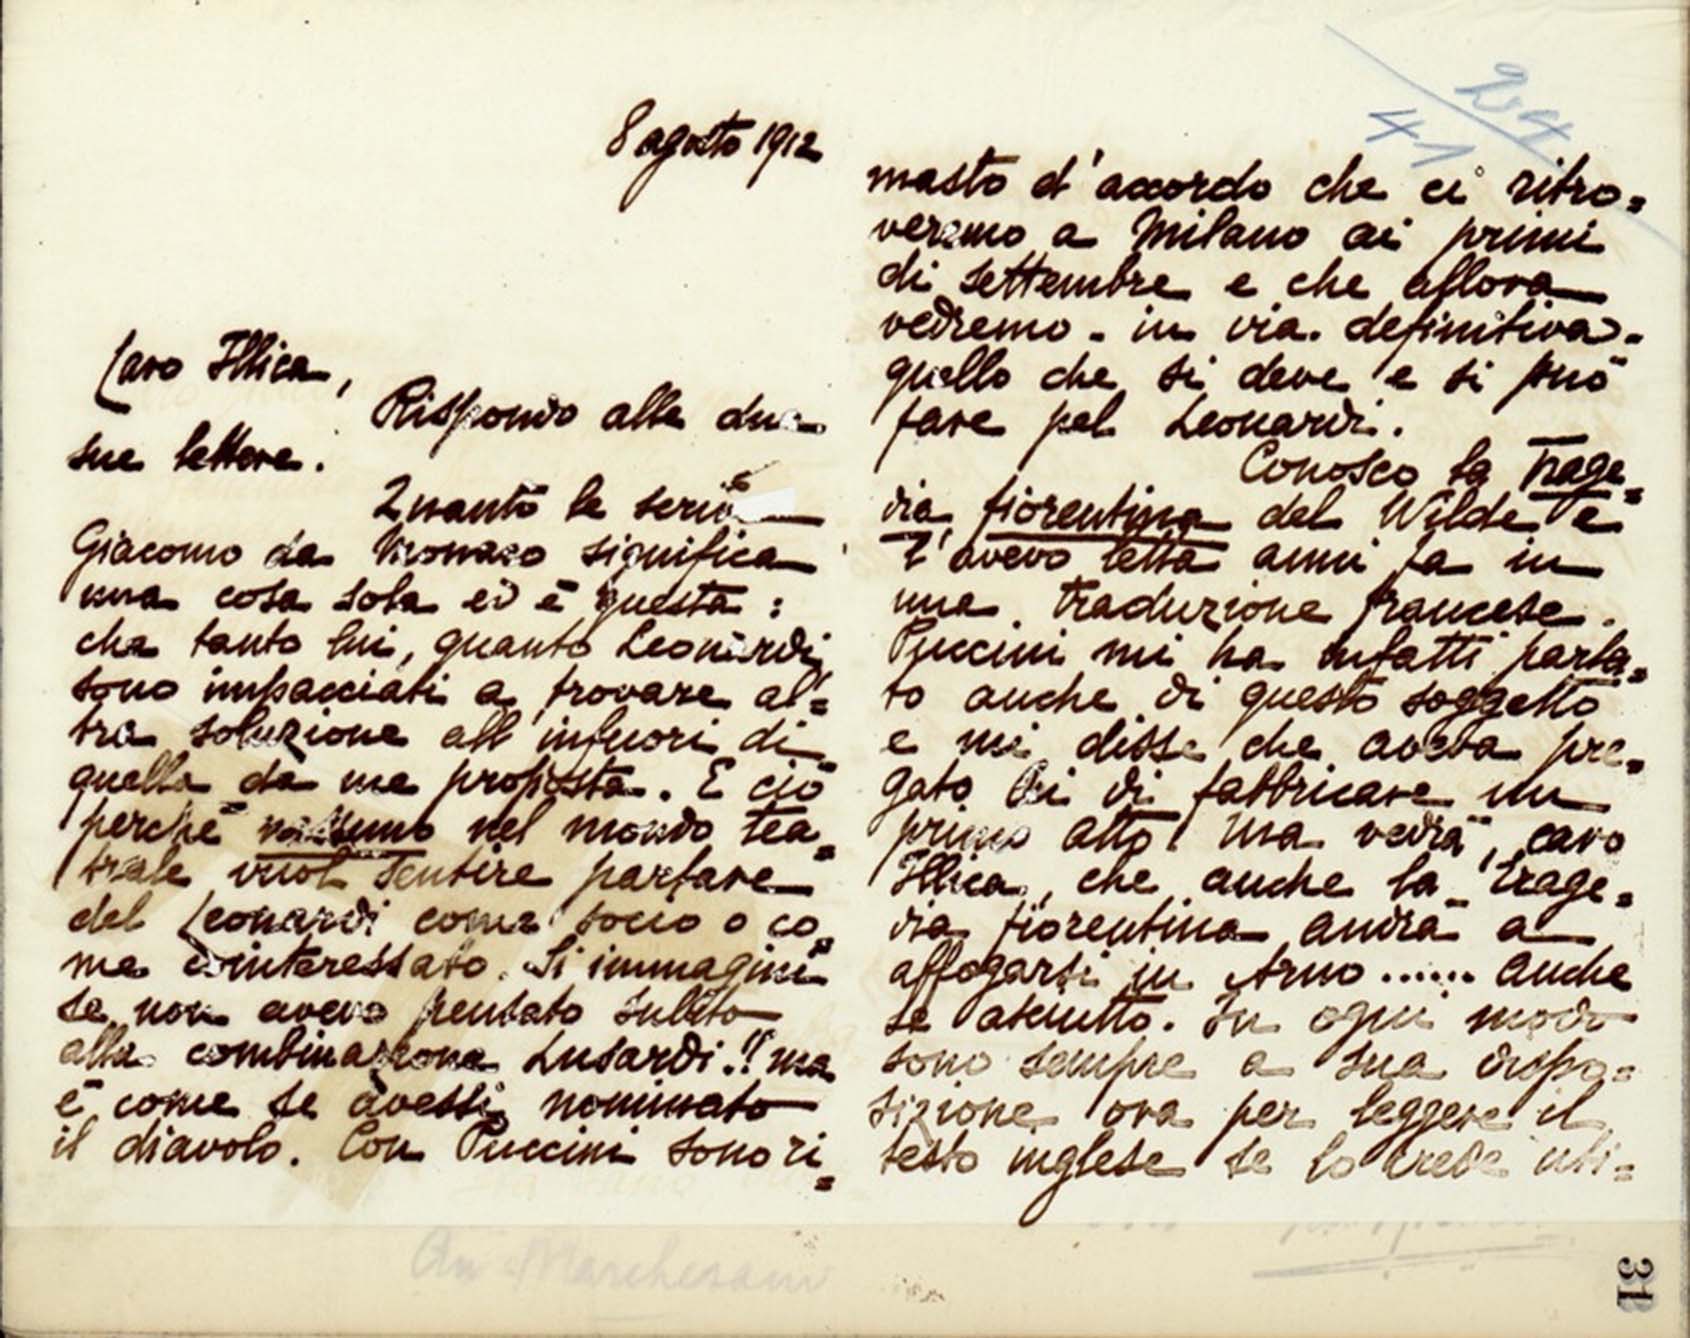 8 agosto 1912
Caro Illica,
Rispondo alle due
sue lettere.
Quanto le scrive
Giacomo da Monaco significa
una cosa sola ed è questa:
che tanto lui, quanto Leonardi,
sono impacciati a trovare al=
tra soluzione all'infuori di
quella da me proposta. E ciò
perchè nessuno nel mondo tea=
trale vuol sentire parlare
del Leonardi come socio o co=
me cointeressato. Si immagini
se non avevo pensato subito
alla combinazione Lusardi!! ma
è come se avessi nominato
il diavolo. Con Puccini sono ri=
masto d'accordo che ci ritro=
veremo a Milano ai primi
di settembre e che allora
vedremo - in via definitiva -
quello che si deve e si può
fare pel Leonardi.
Conosco la Trage=
dia fiorentina del Wilde e
l'avevo letta anni fa in
una traduzione francese.
Puccini mi ha infatti parla=
to anche di questo soggetto
e mi disse che aveva pre=
gato Lei di fabbricare un
primo atto! Ma vedrà, caro
Illica, che anche la Trage=
dia fiorentina andrà a
affogarsi in Arno...... anche
se asciutto. In ogni modo
sono sempre a sua dispo=
sizione ora per leggere il
testo inglese se lo crede uti=
24
41
Marchesani
31